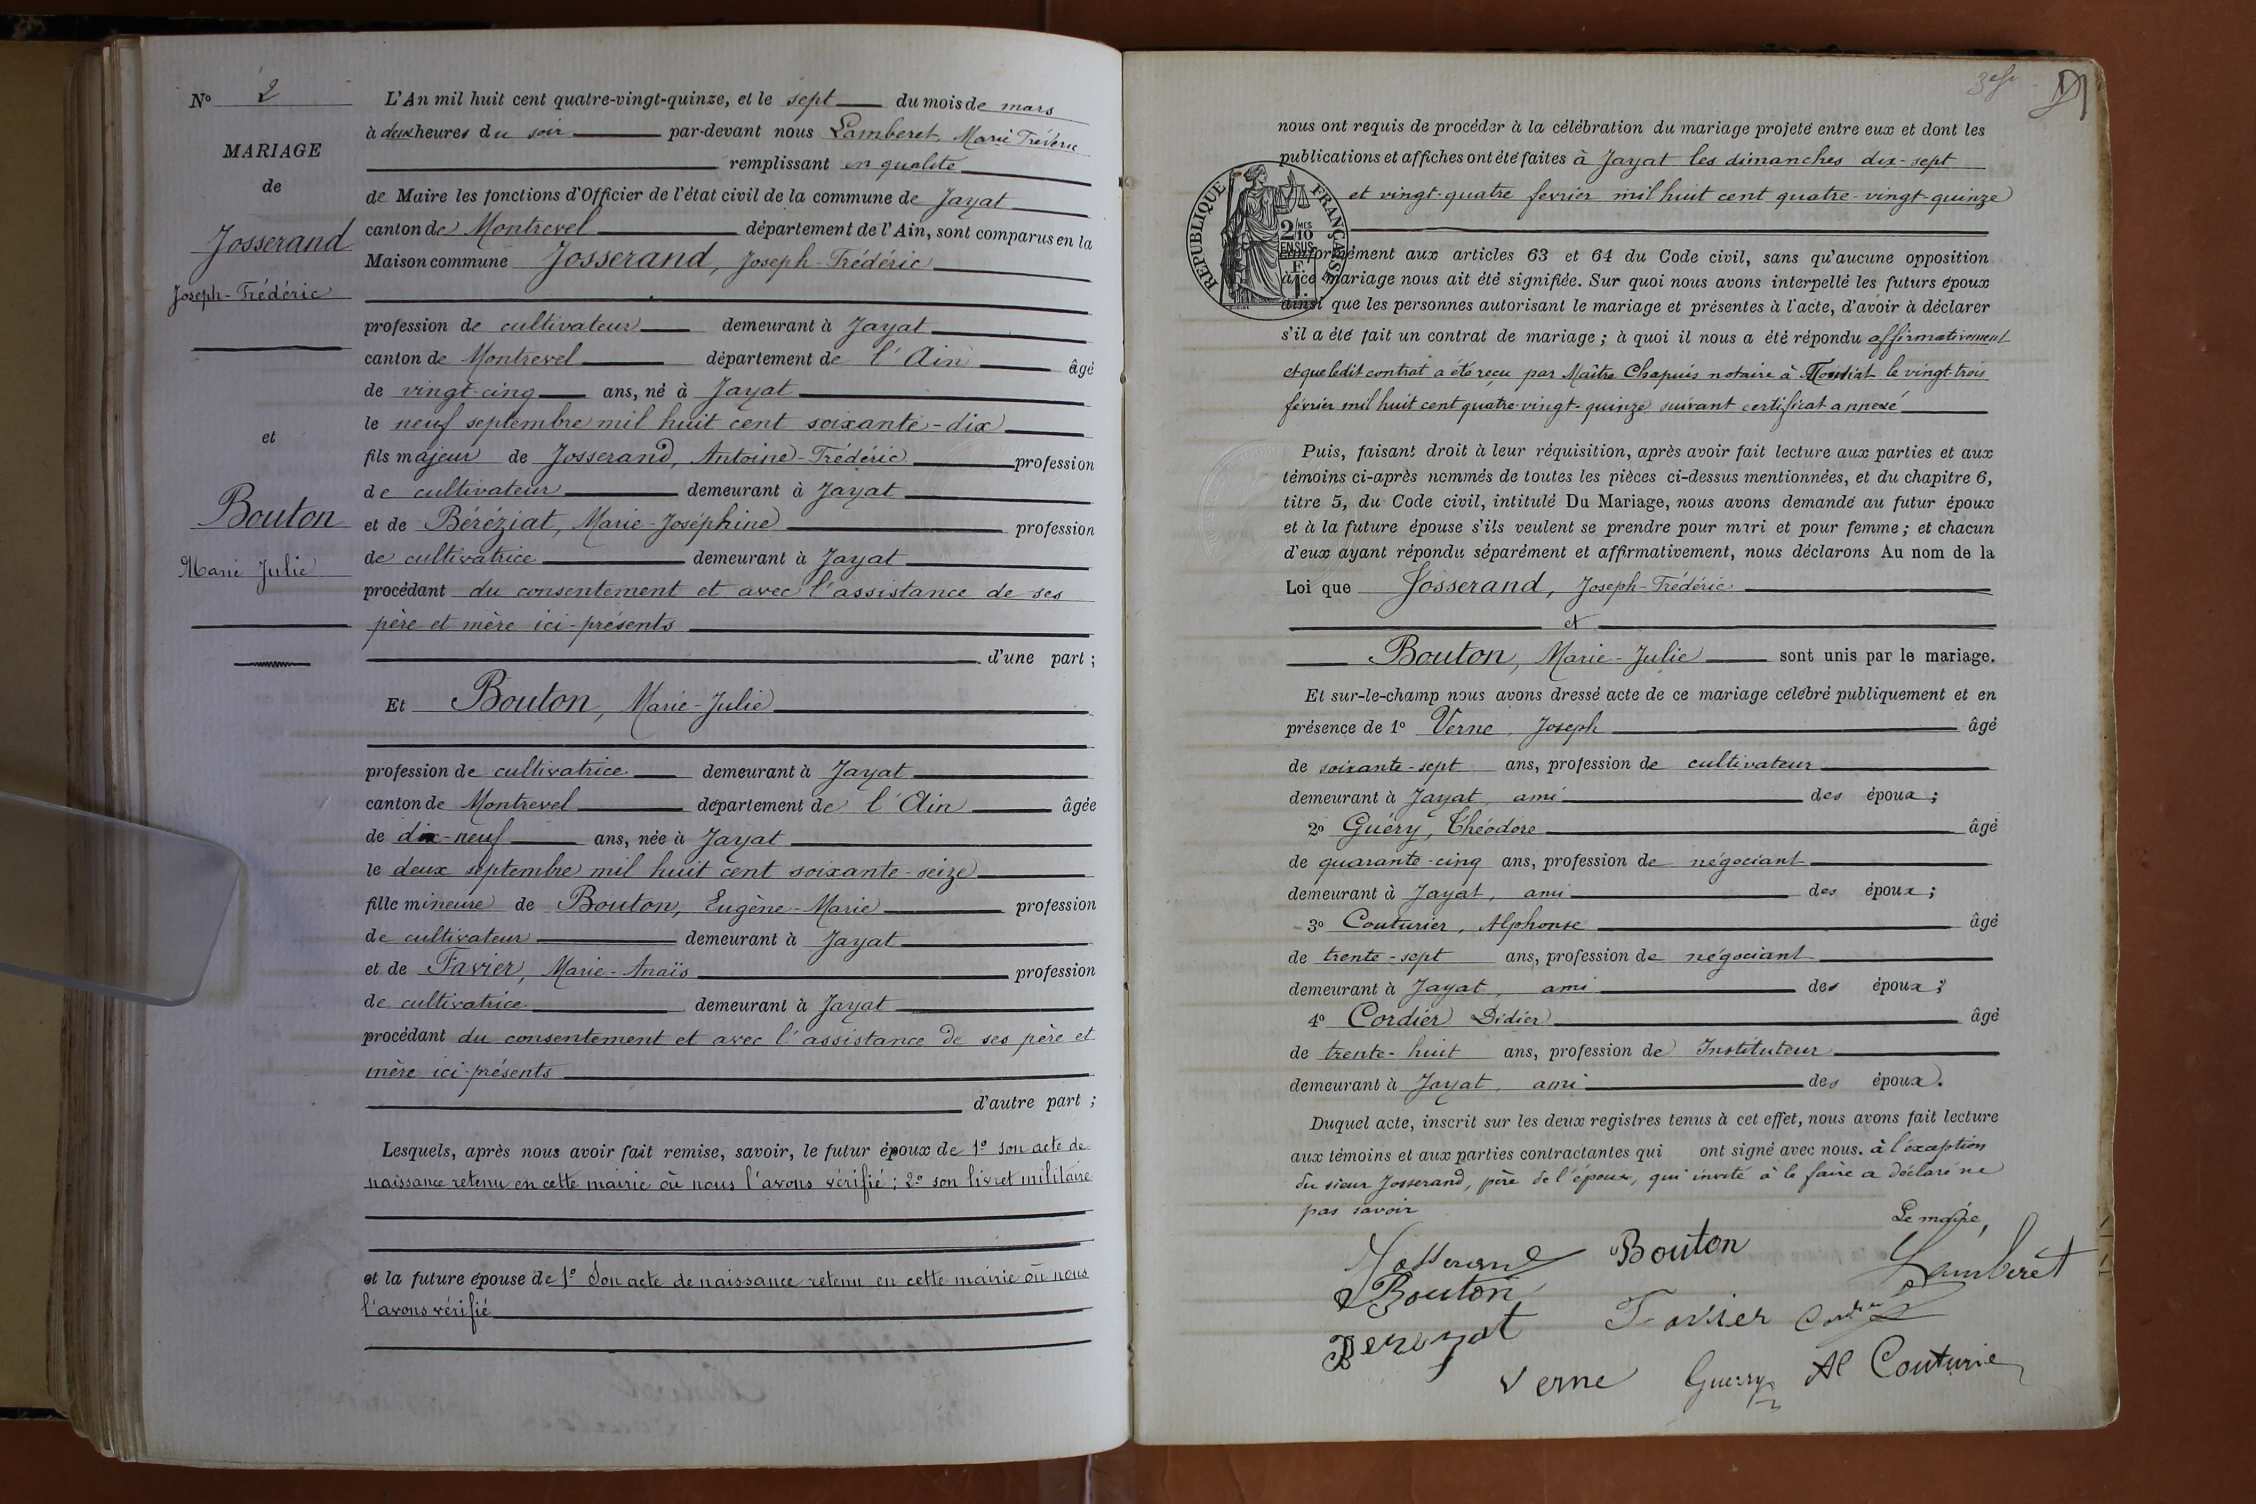 N° 2
MARIAGE
de
Josserand
Joseph-Frédéric
et
Bouton
Marie Julie
L'An mil huit cent quatre-vingt-quinze, et le sept du mois de mars
à deux heures du soir par-devant nous Lamberet, Marie Frédéric
remplissant en qualité
de Maire les fonctions d'Officier de l'état civil de la commune de Jayat
canton de Montrevel département de l'Ain, sont comparus en la
Maison commune Josserand, Joseph-Frédéric
profession de cultivateur demeurant à Jayat
canton de Montrevel département de l'Ain âgé
de vingt-cinq ans, né à Jayat
le neuf septembre mil huit cent soixante-dix
fils majeur de Josserand, Antoine-Frédéric profession
de cultivateur demeurant à Jayat
et de Béréziat, Marie-Joséphine profession
de cultivatrice demeurant à Jayat
procédant du consentement et avec l'assistance de ses
père et mère ici-présents
d'une part ;
Et Bouton, Marie-Julie
profession de cultivatrice demeurant à Jayat
canton de Montrevel département de l'Ain âgée
de dix-neuf ans, née à Jayat
le deux septembre mil huit cent soixante-seize
fille mineure de Bouton, Eugène-Marie profession
de cultivateur demeurant à Jayat
et de Favier, Marie-Anaïs profession
de cultivatrice demeurant à Jayat
procédant du consentement et avec l'assistance de ses père et
mère ici-présents
d'autre part ;
Lesquels, après nous avoir fait remise, savoir, le futur époux de 1° son acte de
naissance retenu en cette mairie où nous l'avons vérifié ; 2° son livret militaire
et la future épouse de 1° Son acte de naissance retenu en cette mairie où nous
l'avons vérifié
nous ont requis de procéder à la célébration du mariage projeté entre eux et dont les
publications et affiches ont été faites à Jayat les dimanches dix-sept
et vingt-quatre fevrier mil huit cent quatre-vingt-quinze
REPUBLIQUE FRANÇAISE
2/10 MES
EN SUS
1 F.
conformément aux articles 63 et 64 du Code civil, sans qu'aucune opposition
à ce mariage nous ait été signifiée. Sur quoi nous avons interpellé les futurs époux
ainsi que les personnes autorisant le mariage et présentes à l'acte, d'avoir à déclarer
s'il a été fait un contrat de mariage ; à quoi il nous a été répondu affirmativement
et que ledit contrat a été reçu par Maître Chapuis notaire à le vingt-trois
février mil huit cent quatre-vingt-quinze suivant certificat annexé
Puis, faisant droit à leur réquisition, après avoir fait lecture aux parties et aux
témoins ci-après nommés de toutes les pièces ci-dessus mentionnées, et du chapitre 6,
titre 5, du Code civil, intitulé Du Mariage, nous avons demandé au futur époux
et à la future épouse s'ils veulent se prendre pour mari et pour femme ; et chacun
d'eux ayant répondu séparément et affirmativement, nous déclarons Au nom de la
Loi que Josserand, Joseph-Frédéric
et
Bouton, Marie-Julie sont unis par le mariage.
Et sur-le-champ nous avons dressé acte de ce mariage célébré publiquement et en
présence de 1° Verne, Joseph âgé
de soixante-sept ans, profession de cultivateur
demeurant à Jayat, ami des époux ;
2° Guéry, Théodore âgé
de quarante-cinq ans, profession de négociant
demeurant à Jayat, ami des époux ;
3° Couturier, Alphonse âgé
de trente-sept ans, profession de négociant
demeurant à Jayat, ami des époux ;
4° Cordier Didier âgé
de trente-huit ans, profession de Instituteur
demeurant à Jayat, ami des époux.
Duquel acte, inscrit sur les deux registres tenus à cet effet, nous avons fait lecture
aux témoins et aux parties contractantes qui ont signé avec nous. à l'exception
du sieur Josserand, père de l'époux, qui invité à le faire a déclaré ne
pas savoir
Le maire,
Josserand Bouton Lamberet
Bouton
Bereziat Favier Cordier
Verne Guerry Al Couturier